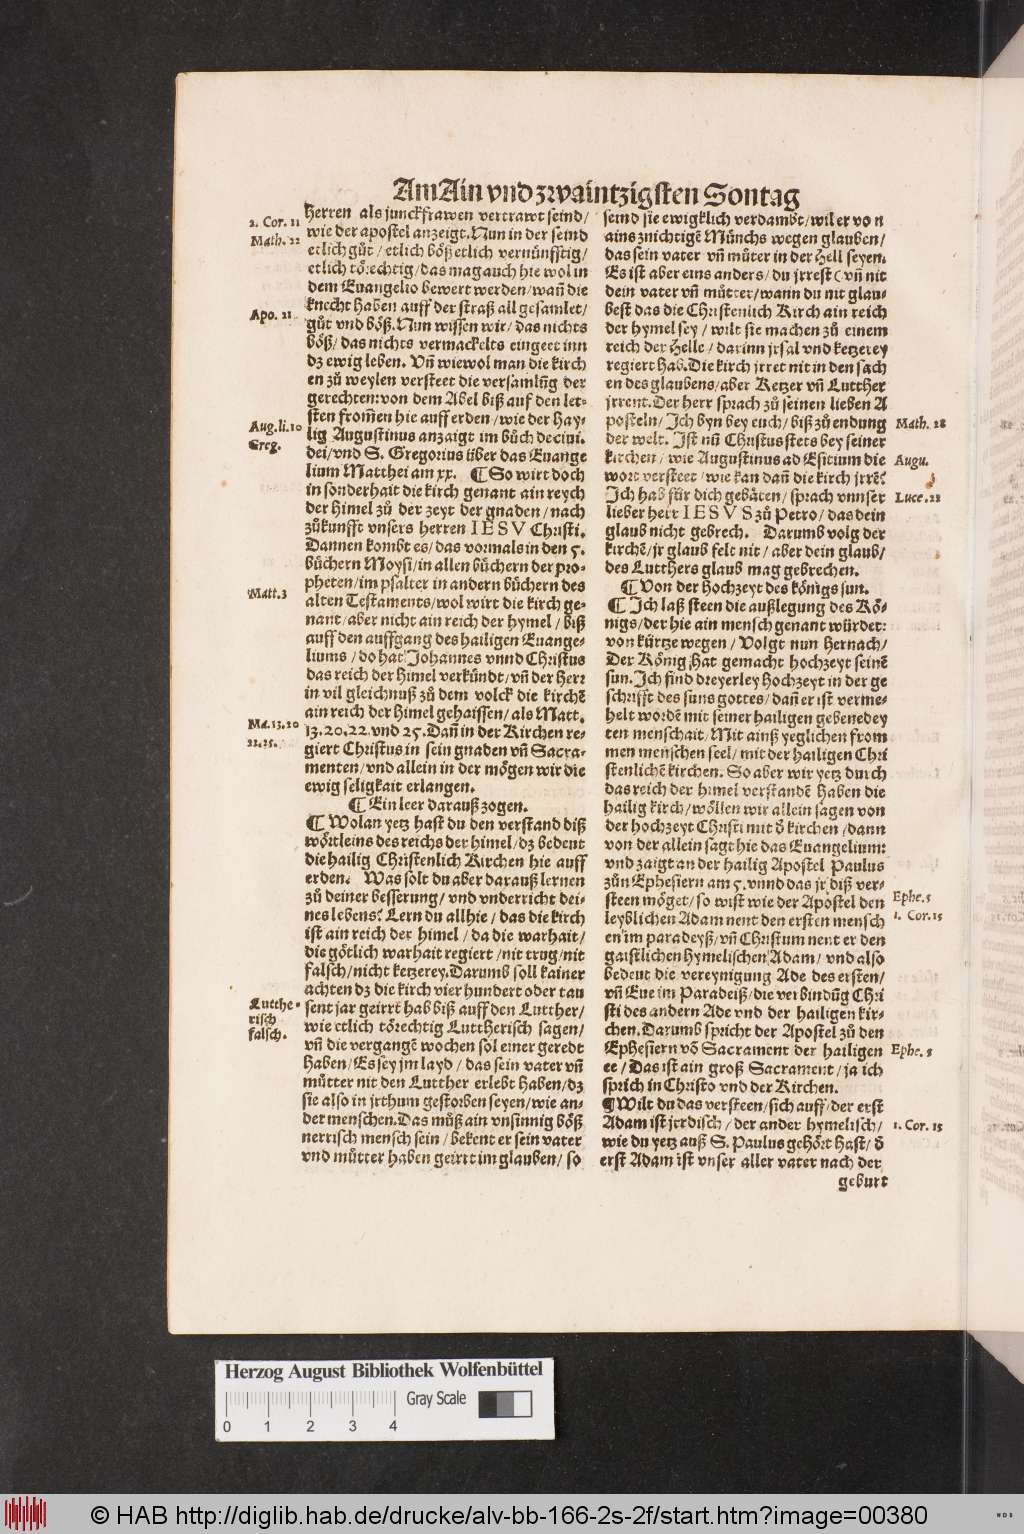 Am Ain vnd zwaintzigsten Sontag
2. Cor. 11
Math. 22
Apo. 21
Aug. li. 10
Greg.
Matt. 3
Ma. 13. 20
22. 25.
Lutthe-
risch
falsch.
Herren als junckfrawen vertrawt seind/
wie der apostel anzeigt. Nun in der seind
etlich gůt/ etlich böß/ etlich vernünfftig/
etlich törechtig/ das mag auch hie wol in
dem Euangelio bewert werden/ wañ die
knecht haben auff der straß all gesamlet/
gůt vnd böß. Nun wissen wir/ das nichts
böß/ das nichts vermackelts eingeet inn
dz ewig leben. Vñ wiewol man die kirch
en zů weylen versteet die versamlũg der
gerechten: von dem Abel biß auf den let-
sten from̃en hie auff erden/ wie der Hay-
lig Augustinus anzaigt im bůch de ciui.
dei/ vnd S. Gregorius über das Euange
lium Matthei am xx. ¶ So wirt doch
in sonderhait die kirch genant ain reych
der Himel zů der zeyt der gnaden/ nach
zůkunfft vnsers herren IESV Christi.
Dannen kombt es/ das vormals in den 5.
büchern Moysi/ in allen büchern der pro-
pheten/ im psalter in andern büchern des
alten Testaments/ wol wirt die kirch ge-
nant/ aber nicht ain reich der hymel/ biß
auff den auffgang des hailigen Euange-
liums/ do hat Johannes vnnd Christus
das reich der Himel verkündt/ vñ der Herr
in vil gleichnuß zů dem volck die kirchẽ
ain reich der Himel gehaissen/ als Matt.
13. 20. 22. vnd 25. Dañ in der Kirchen re-
giert Christus in sein gnaden vñ Sacra-
menten/ vnd allein in der mögen wir die
ewig seligkait erlangen.
¶ Ein leer darauß zogen.
¶ Wolan yetz hast du den verstand diß
wörtleins des reichs der himel/ dz bedeut
die hailig Christenlich Kirchen hie auff
erden. Was solt du aber darauß lernen
zů deiner besserung/ vnd vnderricht dei-
nes lebens? Lern du allhie/ das die kirch
ist ain reich der himel/ da die warhait/
die götlich warhait regiert/ nit trug/ nit
falsch/ nicht ketzerey. Darumb soll kainer
achten dz die kirch vier hundert oder tau
sent jar geirrt hab biß auff den Lutther/
wie etlich törechtig Luttherisch sagen/
vñ die vergangẽ wochen sol einer geredt
haben/ Es sey jm layd/ das sein vater vñ
můtter nit den Lutther erlebt haben/ dz
sie also in jrthum gestorben seyen/ wie an-
der menschen. Das můß ain vnsinnig böß
nerrisch mensch sein/ bekent er sein vater
vnd můtter haben geirrt im glauben/ so
seind sie ewigklich verdambt/ wil er von
ains znichtigẽ Münchs wegen glauben/
das sein vater vñ můter in der Hell seyen.
Es ist aber eins anders/ du jrrest (vñ nit
dein vater vñ můtter/ wann du nit glau-
best das die Christenlich Kirch ain reich
der hymel sey/ wilt sie machen zů einem
reich der Helle/ darinn jrsal vnd ketzerey
regiert hab. Die kirch jrret nit in den sach
en des glaubens/ aber Ketzer vñ Lutther
jrrent. Der herr sprach zů seinen lieben A
posteln/ Ich byn bey euch/ biß zů endung
der welt. Ist nũ Christus stets bey seiner
kirchen/ wie Augustinus ad Esitium die
wort versteet/ wie kan dañ die kirch jrrẽ?
Ich hab für dich gebäten/ sprach vnnser
lieber herr IESVS zů Petro/ das dein
glaub nicht gebrech. Darumb volg der
kirchẽ/ jr glaub felt nit/ aber dein glaub/
des Lutthers glaub mag gebrechen.
¶ Von der hochzeyt des königs sun.
¶ Ich laß steen die außlegung des Kö-
nigs/ der hie ain mensch genant würdet:
von kürtze wegen/ Volgt nun hernach/
Der König hat gemacht hochzeyt seinẽ
sun. Ich find dreyerley hochzeyt in der ge
schrifft des suns gottes/ dañ er ist verme-
helt wordẽ mit seiner hailigen gebenedey
ten menschait/ Mit ainß yeglichen from
men menschen seel/ mit der hailigen Chri
stenlichẽ kirchen. So aber wir yetz durch
das reich der himel verstandẽ haben die
hailig kirch/ wöllen wir allein sagen von
der hochzeyt Christi mit ð kirchen/ dann
von der allein sagt hie das Euangelium:
vnd zaigt an der hailig Apostel Paulus
zůn Ephesiern am 5. vnnd das jr diß ver-
steen möget/ so wist wie der Apostel den
leyblichen Adam nent den ersten mensch
en im paradeyß/ vñ Christum nent er den
gaistlichen hymelischen Adam/ vnd also
bedeut die vereynigung Ade des ersten/
vñ Eue im Paradeiß/ die verbindũg Chri
sti des andern Ade vnd der hailigen kir-
chen. Darumb spricht der Apostel zů den
Ephesiern võ Sacrament der hailigen
ee/ Das ist ain groß Sacrament/ ja ich
sprich in Christo vnd der Kirchen.
¶ Wilt du das versteen/ sich auff/ der erst
Adam ist jrrdisch/ der ander hymelisch/
wie du yetz auß S. Paulus gehört hast/ ð
erst Adam ist vnser aller vater nach der
geburt
Math. 28
Augu.
Luce. 22
Ephe. 5
1. Cor. 15
Ephe. 5
1. Cor. 15
Herzog August Bibliothek Wolfenbüttel
Gray Scale
0 1 2 3 4
© HAB http://diglib.hab.de/drucke/alv-bb-166-2s-2f/start.htm?image=00380